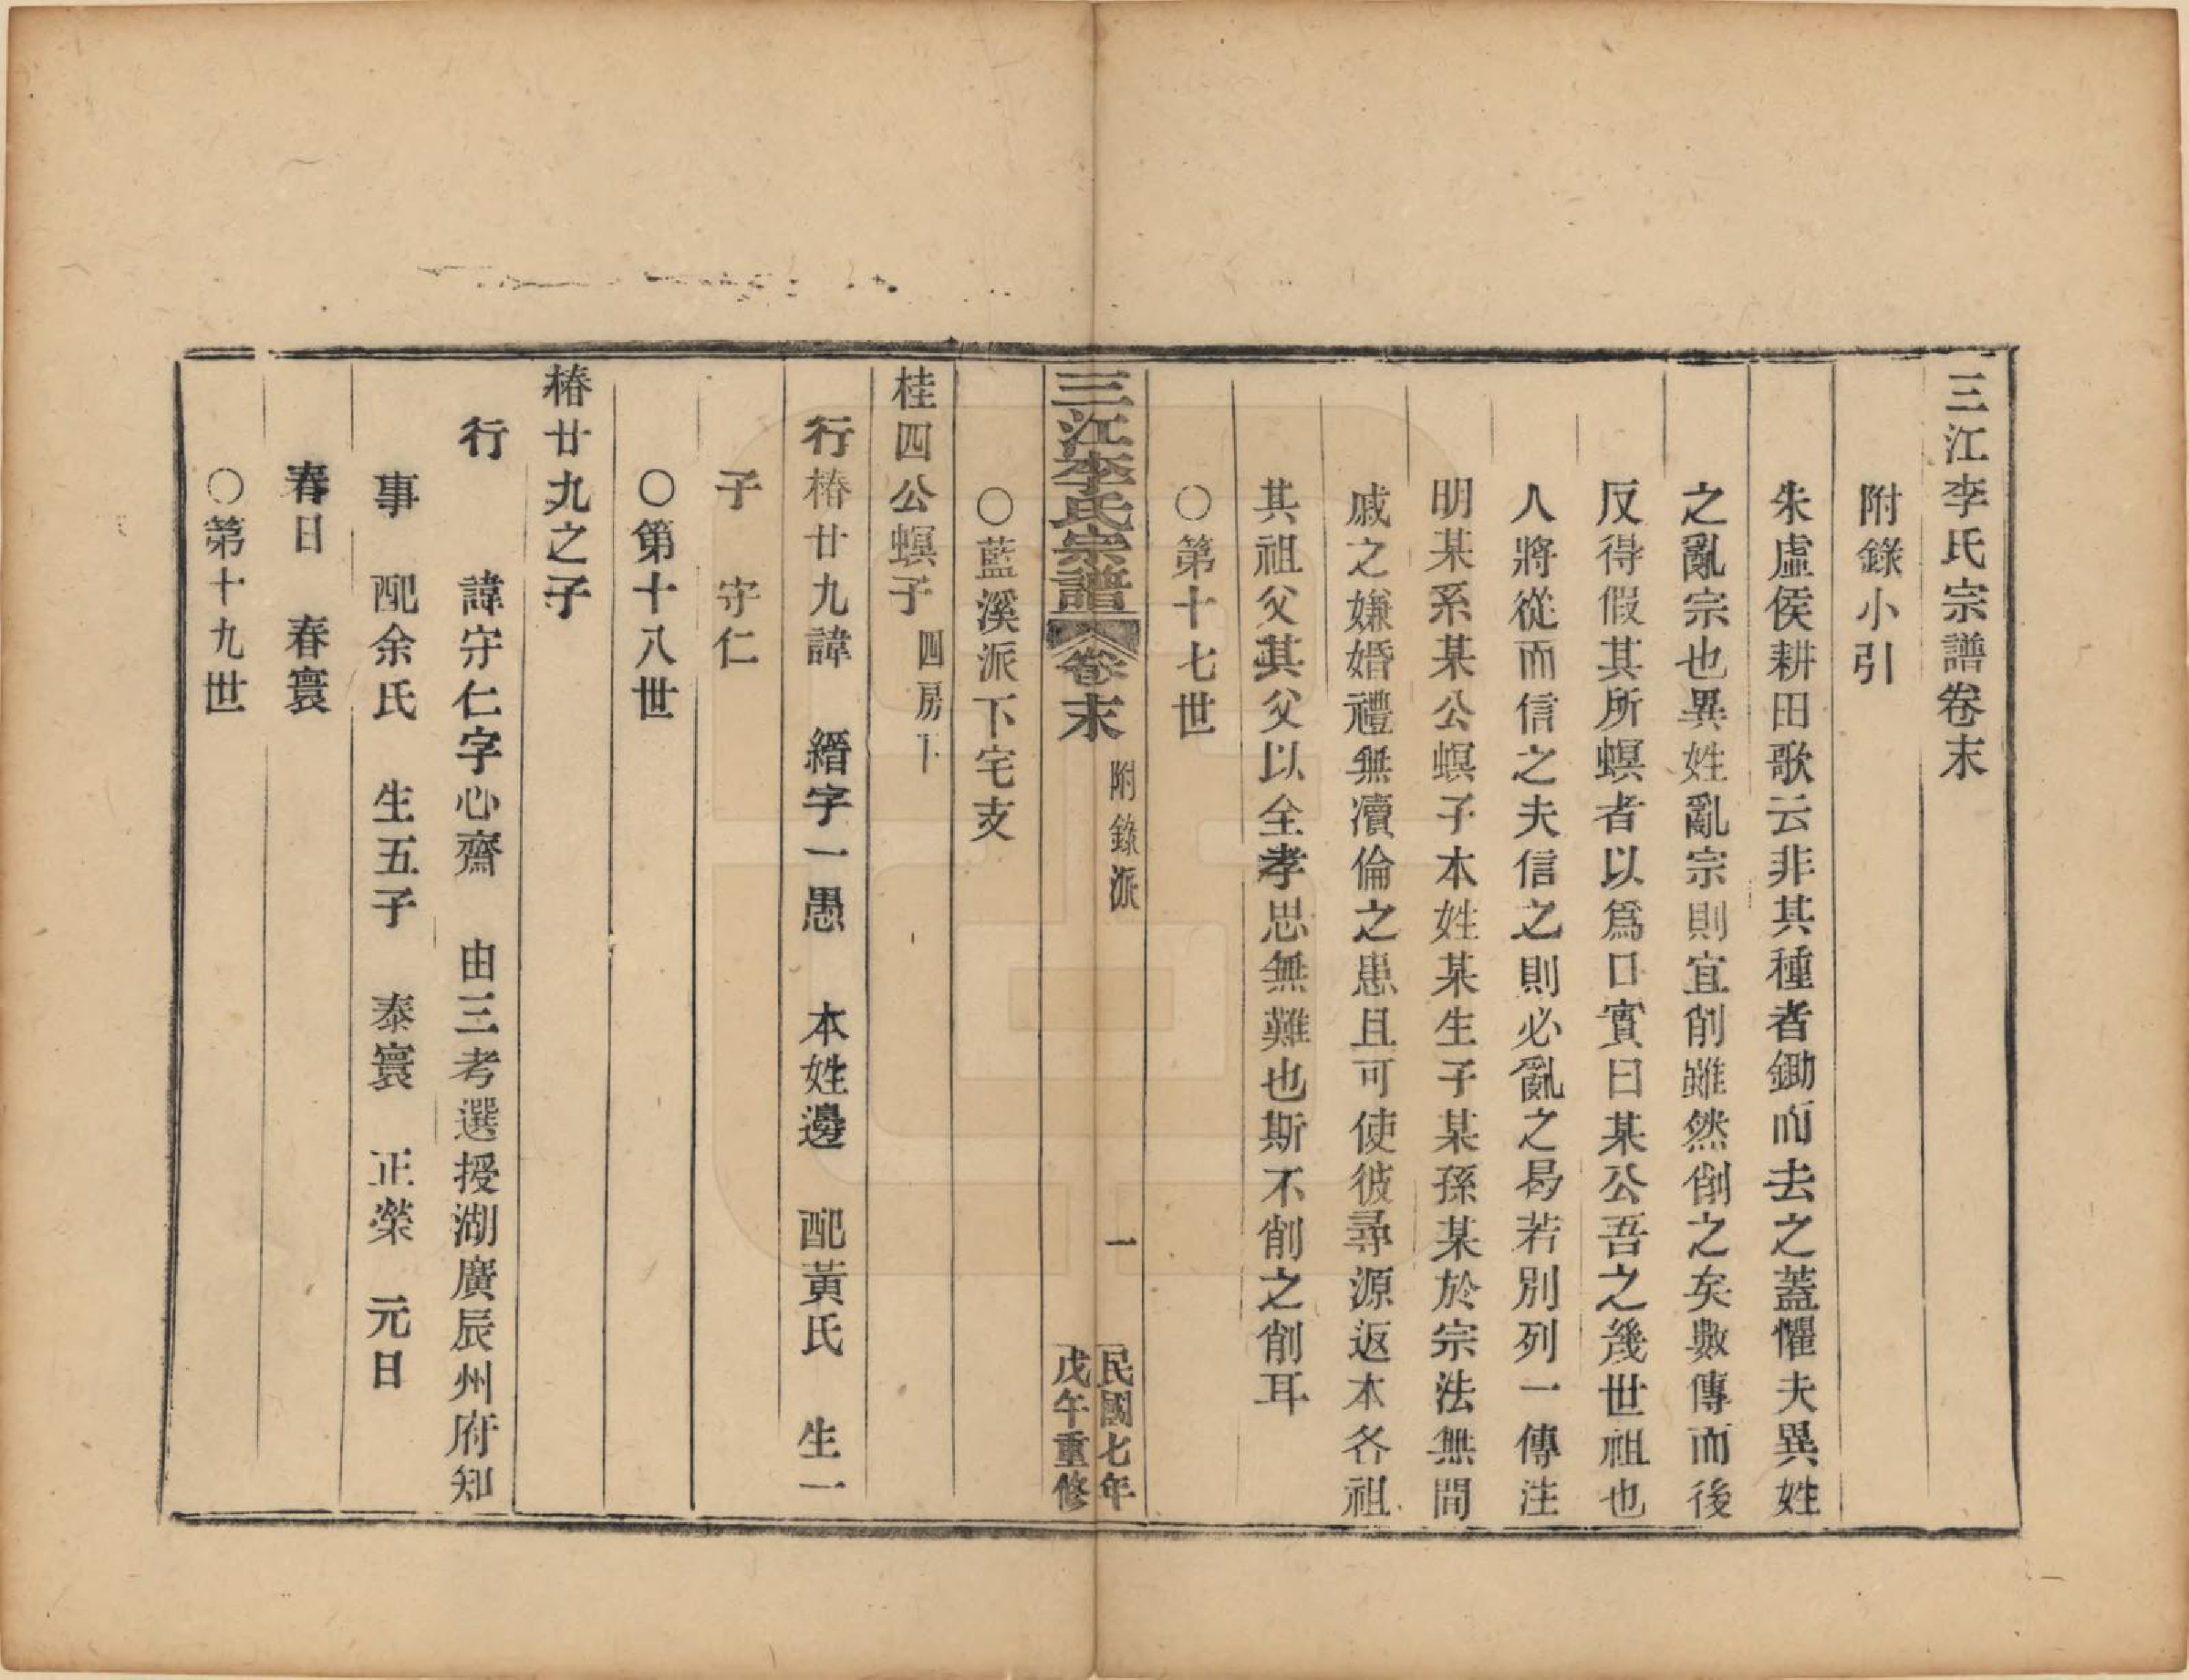 三江李氏宗譜卷末
附錄小引
朱虛侯耕田歌云非其種者鋤而去之蓋懼夫異姓
之亂宗也異姓亂宗則宜削雖然削之矣數傳而後
反得假其所螟者以爲口實曰某公吾之幾世祖也
人將從而信之夫信之則必亂之曷若別列一傳注
明某系某公螟子本姓某生子某孫某於宗法無間
戚之嫌婚禮無瀆倫之患且可使彼尋源返本各祖
其祖父其父以全孝思無難也斯不削之削耳
○第十七世
三江李氏宗譜 卷末 附錄派 一 民國七年戊午重修
○藍溪派下宅支
桂四公螟子 四房下
行椿廿九諱 縉字一愚 本姓邊 配黃氏 生一
子 守仁
○第十八世
椿廿九之子
行 諱守仁字心齋 由三考選授湖廣辰州府知
事 配余氏 生五子 泰寰 正榮 元日
春日 春寰
○第十九世